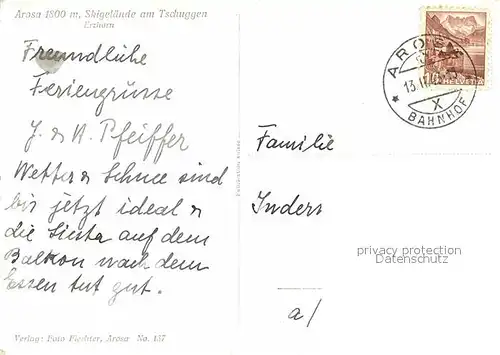 Arosa 1800 m, Skigelände am Tschuggen
Erzhorn
Freundliche
Feriengrüsse
J. & A. Pfeiffer
Wetter & Schnee sind
bis jetzt ideal &
die Siesta auf dem
Balkon nach dem
Essen tut gut.
Verlag: Foto Fiechter, Arosa No. 157
AROSA
BAHNHOF
X
HELVETIA
Familie
Inders
privacy protection
Datenschutz
a/